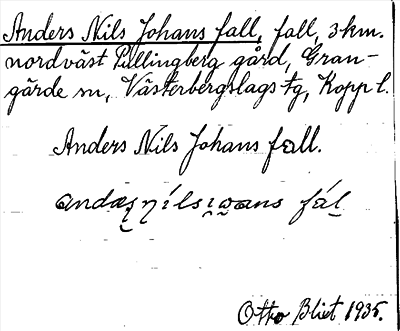 Anders Nils Johans fall, fall, 3 km.
nordväst Pullingberg gård, Gran-
gärde sn, Västerbergslags tg, Kopp l.
Anders Nils Johans fall.
Otto Blixt 1935.